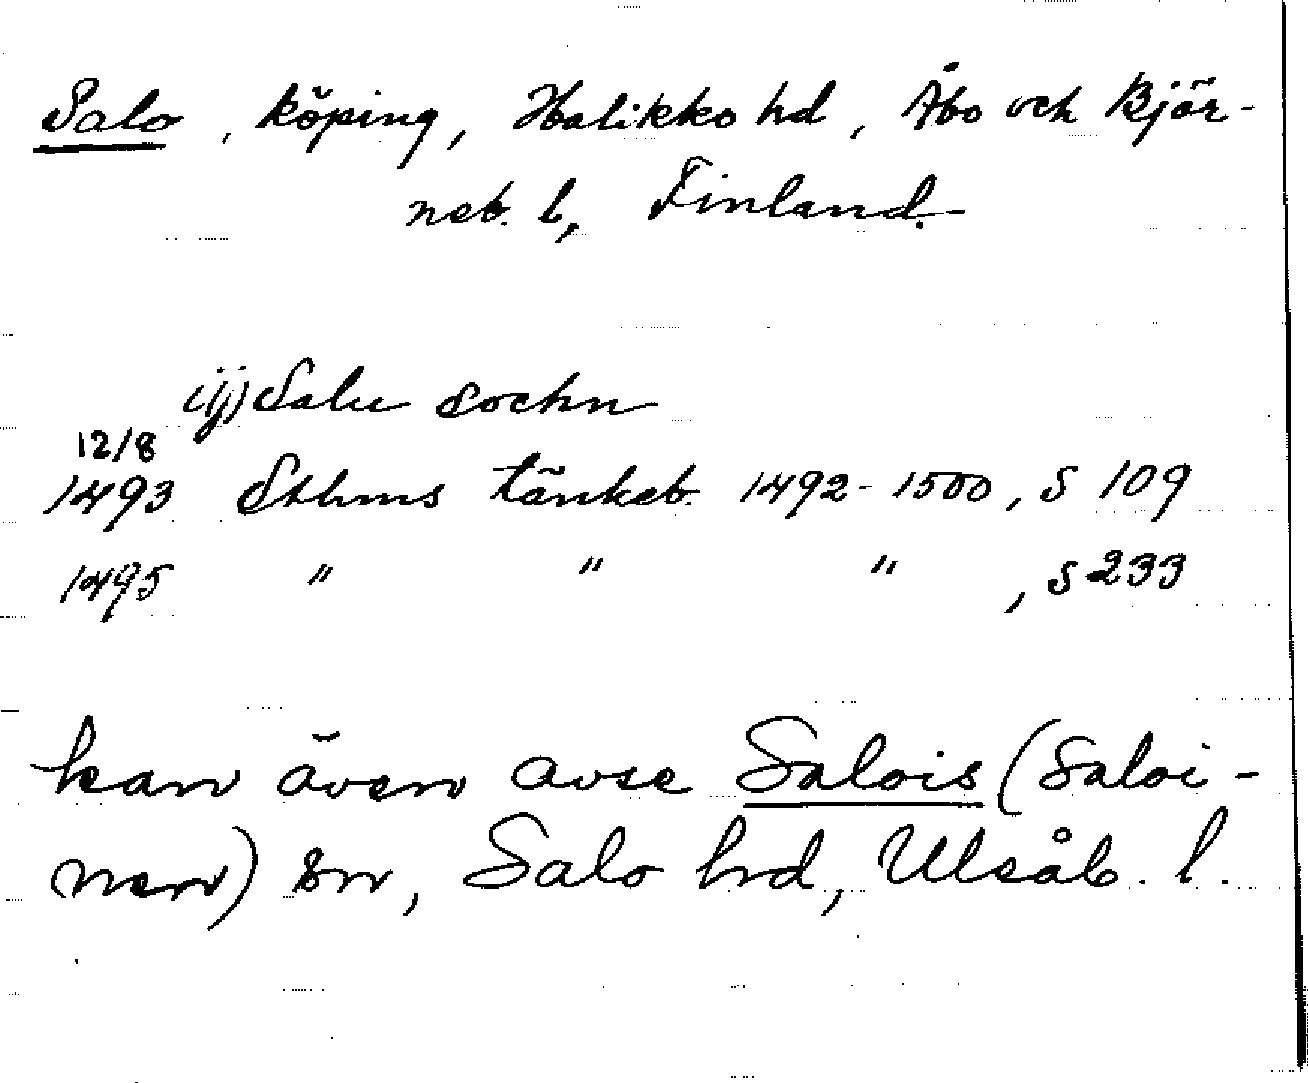 Salo, köping, Halikko hd, Åbo och Bjär-
neb. l, Finland.
iij) Salu sochn
12/8
1493 Sthms tänkeb. 1492-1500, s 109
1495 " " " , s 233
kan även avse Salois (Saloi-
nen) sn, Salo hd, Uleåb. l.